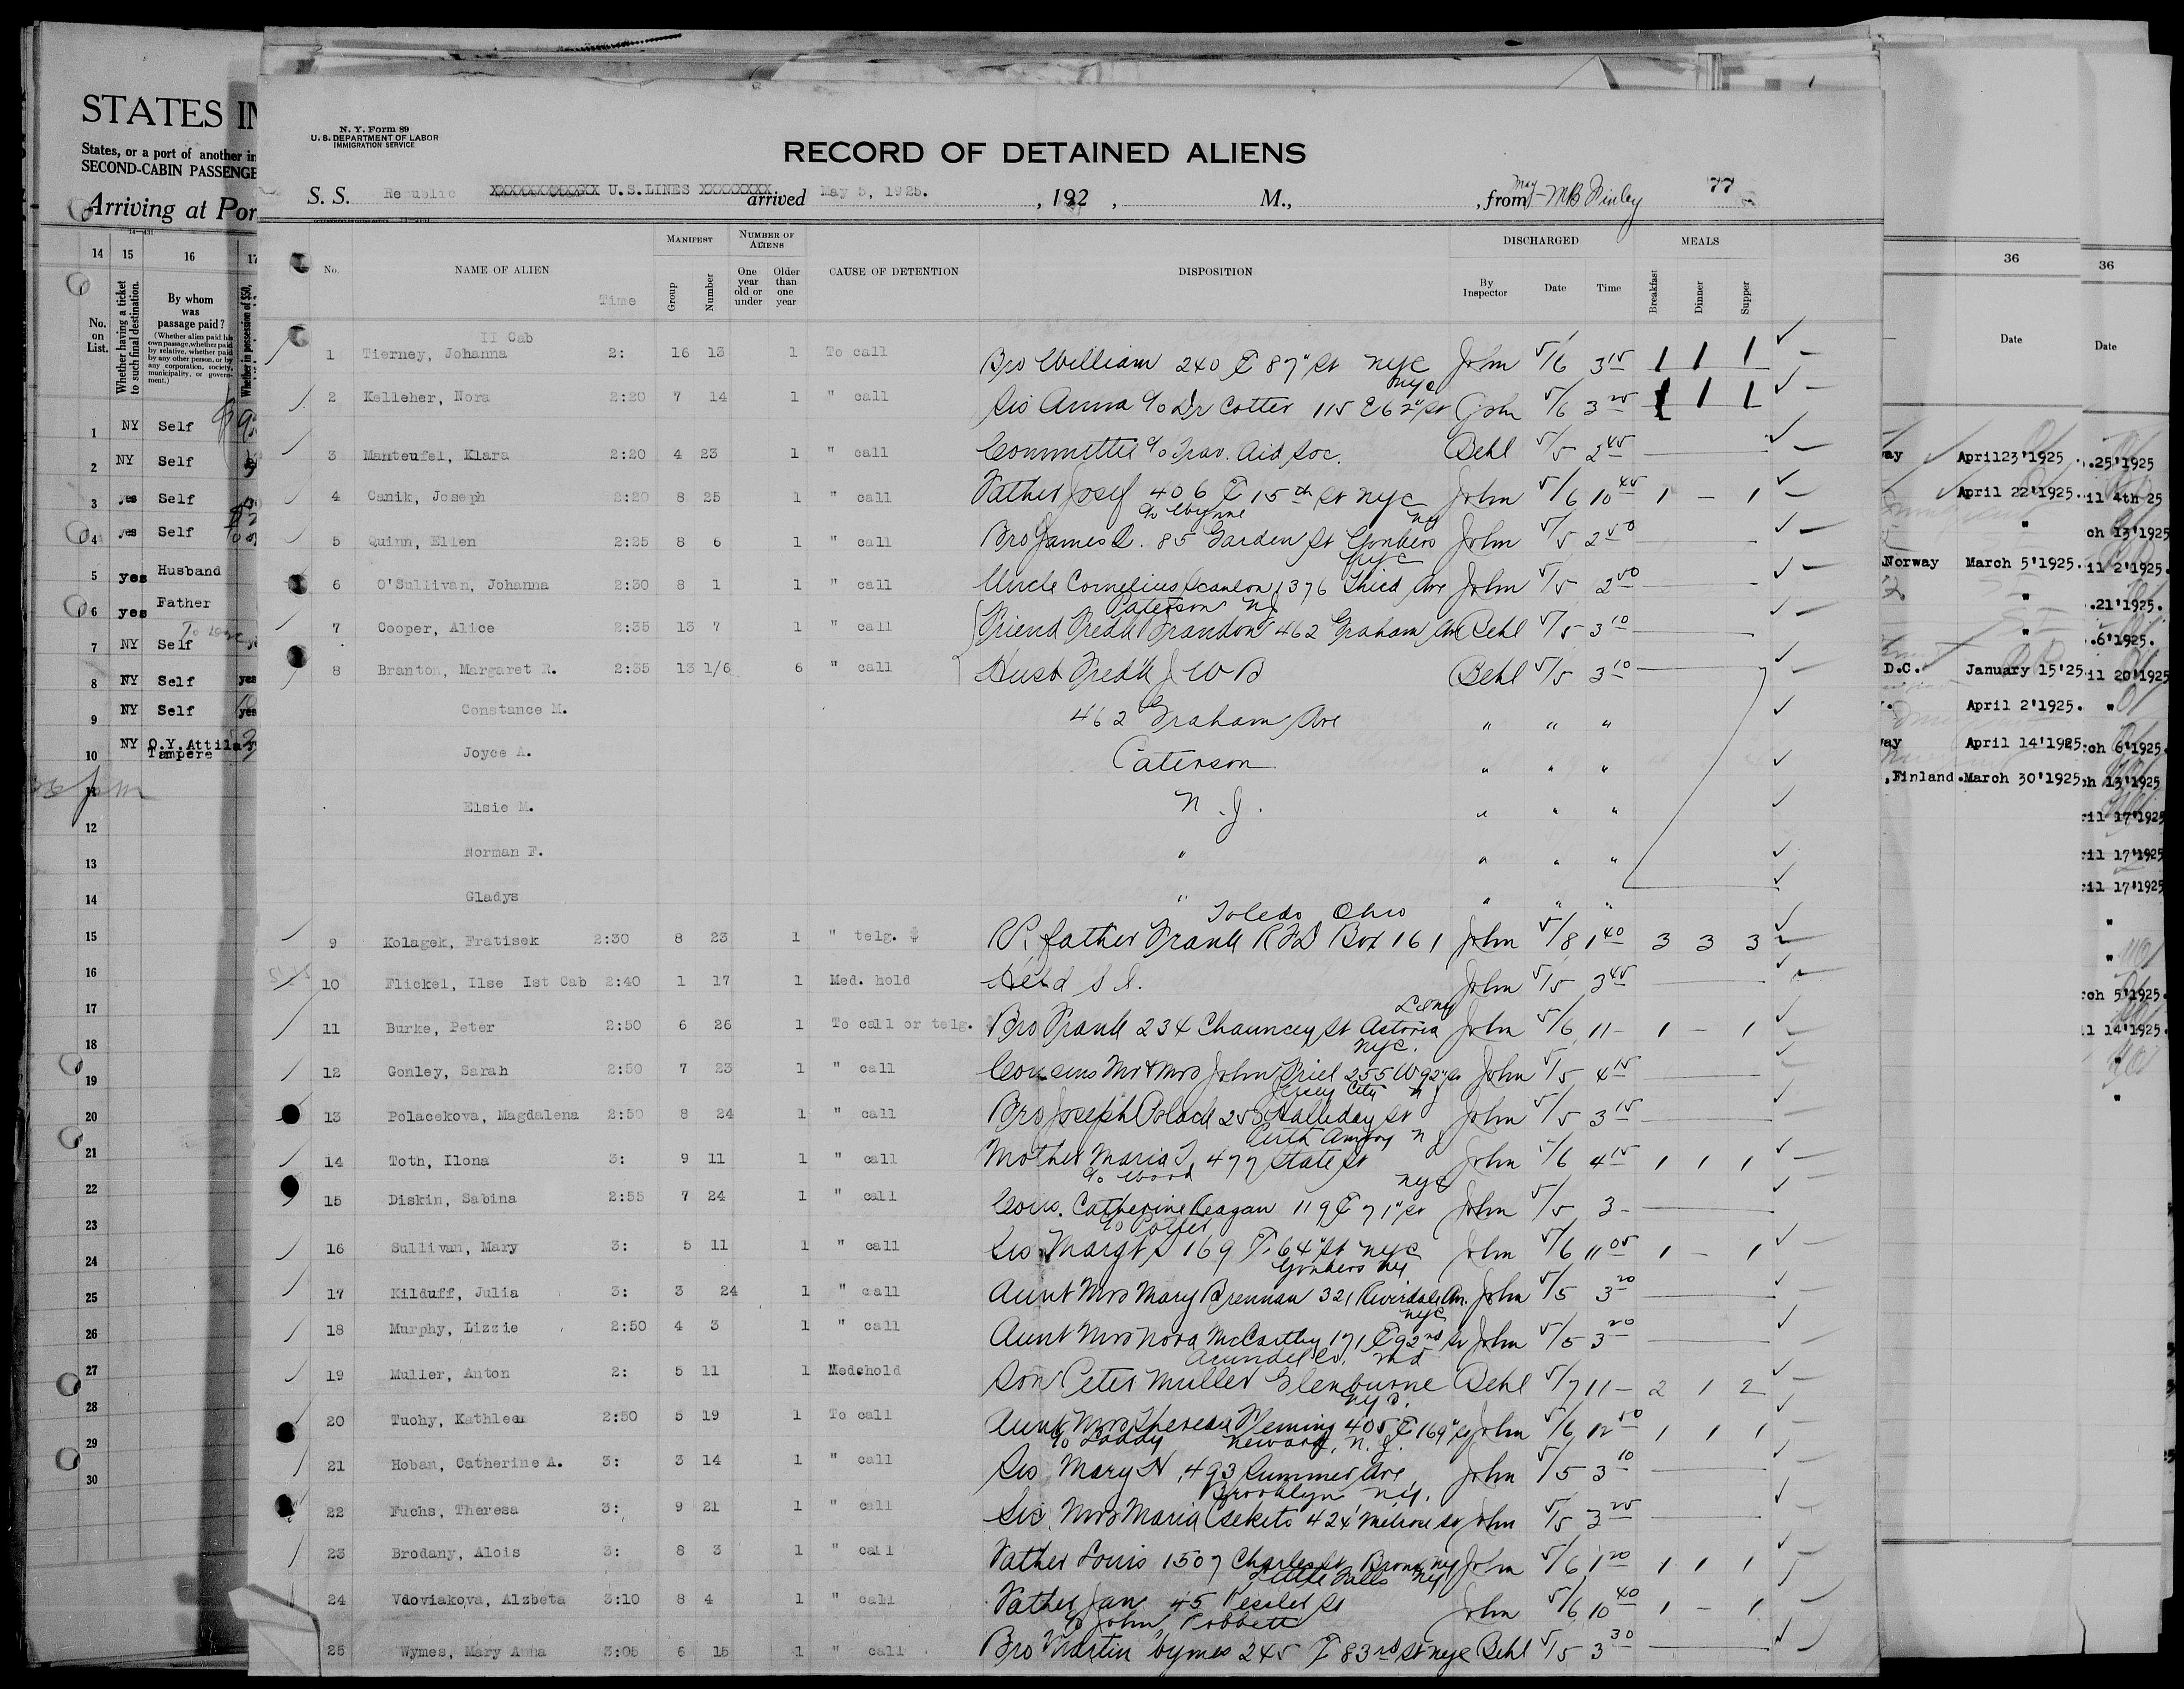 STATES IN
States, or a port of another in
SECOND-CABIN PASSENGE
Arriving at Por
14 15 16 17
No. on List.
Whether having a ticket to such final destination.
By whom was passage paid?
(Whether alien paid his own passage, whether paid by relative, whether paid by any other person, or by any corporation, society, municipality, or government.)
Whether in possession of $50,
1 NY Self
2 NY Self
3 yes Self
4 yes Self
5 yes Husband
6 yes Father
7 NY Self
8 NY Self yes
9 NY Self yes
10 NY O.Y.Attila
Tampere
11
12
13
14
15
16
17
18
19
20
21
22
23
24
25
26
27
28
29
30
N. Y. Form 89
U. S. DEPARTMENT OF LABOR
IMMIGRATION SERVICE
RECORD OF DETAINED ALIENS
77
S. S. Republic XXXXXXXXXXXX U.S.LINES XXXXXXXX arrived May 5, 1925. , 192 , M., , from
No. NAME OF ALIEN Time MANIFEST Group Number NUMBER OF ALIENS One year old or under Older than one year CAUSE OF DETENTION DISPOSITION DISCHARGED By Inspector Date Time MEALS Breakfast Dinner Supper
II Cab
1 Tierney, Johanna 2: 16 13 1 To call Bro William 240 E 87" St NYC John 5/6 3 15 1 1 1
2 Kelleher, Nora 2:20 7 14 1 " call Sis Anna c/o Dr Cotter 115 E 62" St NYC John 5/6 3 25 1 1 1
3 Manteufel, Klara 2:20 4 23 1 " call Committee c/o Trav. Aid Soc. Behl 5/5 2 45
4 Canik, Joseph 2:20 8 25 1 " call Father Josef 406 E 15th St NYC John 5/6 10 45 1 - 1
5 Quinn, Ellen 2:25 8 6 1 " call Bro James Q. c/o Wynne 85 Garden St Yonkers NY John 5/5 2 50
6 O'Sullivan, Johanna 2:30 8 1 1 " call Uncle Cornelius Scanlon 1376 Third Ave NYC John 5/5 2 50
7 Cooper, Alice 2:35 13 7 1 " call Friend Fredk Brandon 462 Graham Ave Paterson NJ Behl 5/5 3 10
8 Branton, Margaret R. 2:35 13 1/6 6 " call Husb Fredk J W B Behl 5/5 3 10
Constance M. 462 Graham Ave " " "
Joyce A. Paterson " " "
Elsie M. N. J. " " "
Norman F. " " " "
Gladys " " " "
9 Kolagek, Fratisek 2:30 8 23 1 " telg. $ father Frank RFD Box 161 Toledo Ohio John 5/8 1 40 3 3 3
10 Flickel, Ilse Ist Cab 2:40 1 17 1 Med. hold Held S I. John 5/5 3 45
11 Burke, Peter 2:50 6 26 1 To call or telg. Bro Frank 234 Chauncey St Astoria John 5/6 11- 1 - 1
12 Gonley, Sarah 2:50 7 23 1 " call Cousins Mr & Mrs John Friel 255 W 92" St NYC. John 5/5 4 15
13 Polacekova, Magdalena 2:50 8 24 1 " call Bro Joseph Polack 253 Halliday St Jersey City N J John 5/5 3 15
14 Toth, Ilona 3: 9 11 1 " call Mother Maria T, 477 State St Perth Amboy N J John 5/6 4 15 1 1 1
15 Diskin, Sabina 2:55 7 24 1 " call Cous. Catherine Reagan c/o Wood 119 E 71" St NYC John 5/5 3-
16 Sullivan, Mary 3: 5 11 1 " call Sis Margt S 169 E. 64" St NYC John 5/6 11 05 1 - 1
17 Kilduff, Julia 3: 3 24 1 " call Aunt Mrs Mary Brennan 321 Riverdale Av. Yonkers NY John 5/5 3 20
18 Murphy, Lizzie 2:50 4 3 1 " call Aunt Mrs Nora McCarthy 171 E 92nd St NYC John 5/5 3 20
19 Muller, Anton 2: 5 11 1 Med.hold Son Peter Muller Glenburne Arundel Co. Md Behl 5/7 11- 2 1 2
20 Tuohy, Kathleen 2:50 5 19 1 To call Aunt Mrs Theresa Fleming 405 E 169" St NYC. John 5/6 12 50 1 1 1
21 Hoban, Catherine A. 3: 3 14 1 " call Sis Mary H, c/o Laddy 493 Summer Ave, Newark, N. J. John 5/5 3 10
22 Fuchs, Theresa 3: 9 21 1 " call Sis. Mrs Maria Csekits 424 Melrose St Brooklyn NY. John 5/5 3 25
23 Brodany, Alois 3: 8 3 1 " call Father Louis 1507 Charles St, Bronx NY John 5/6 1 20 1 1 1
24 Vdoviakova, Alzbeta 3:10 8 4 1 " call Father Jan 45 Pesslet St Little Falls NY John 5/6 10 40 1 - 1
25 Wymes, Mary Anna 3:05 6 15 1 " call Bro Martin Wymes c/o John Pobbett 245 E 83rd St NYC Behl 5/5 3 30
36 36
Date Date
way April23'1925 .25'1925
April 22'1925. il 4th 25
" ch 13'1925
Norway March 5'1925. il 2'1925.
" .21'1925.
" .6'1925.
D.C. January 15'25 il 20'1925
April 2'1925. "
way April 14'1925 ch 6'1925.
, Finland. March 30'1925 h 13'1925
ril 17'1925
ril 17'1925
ril 17'1925
"
"
rch 5'1925.
il 14'1925.
"
"